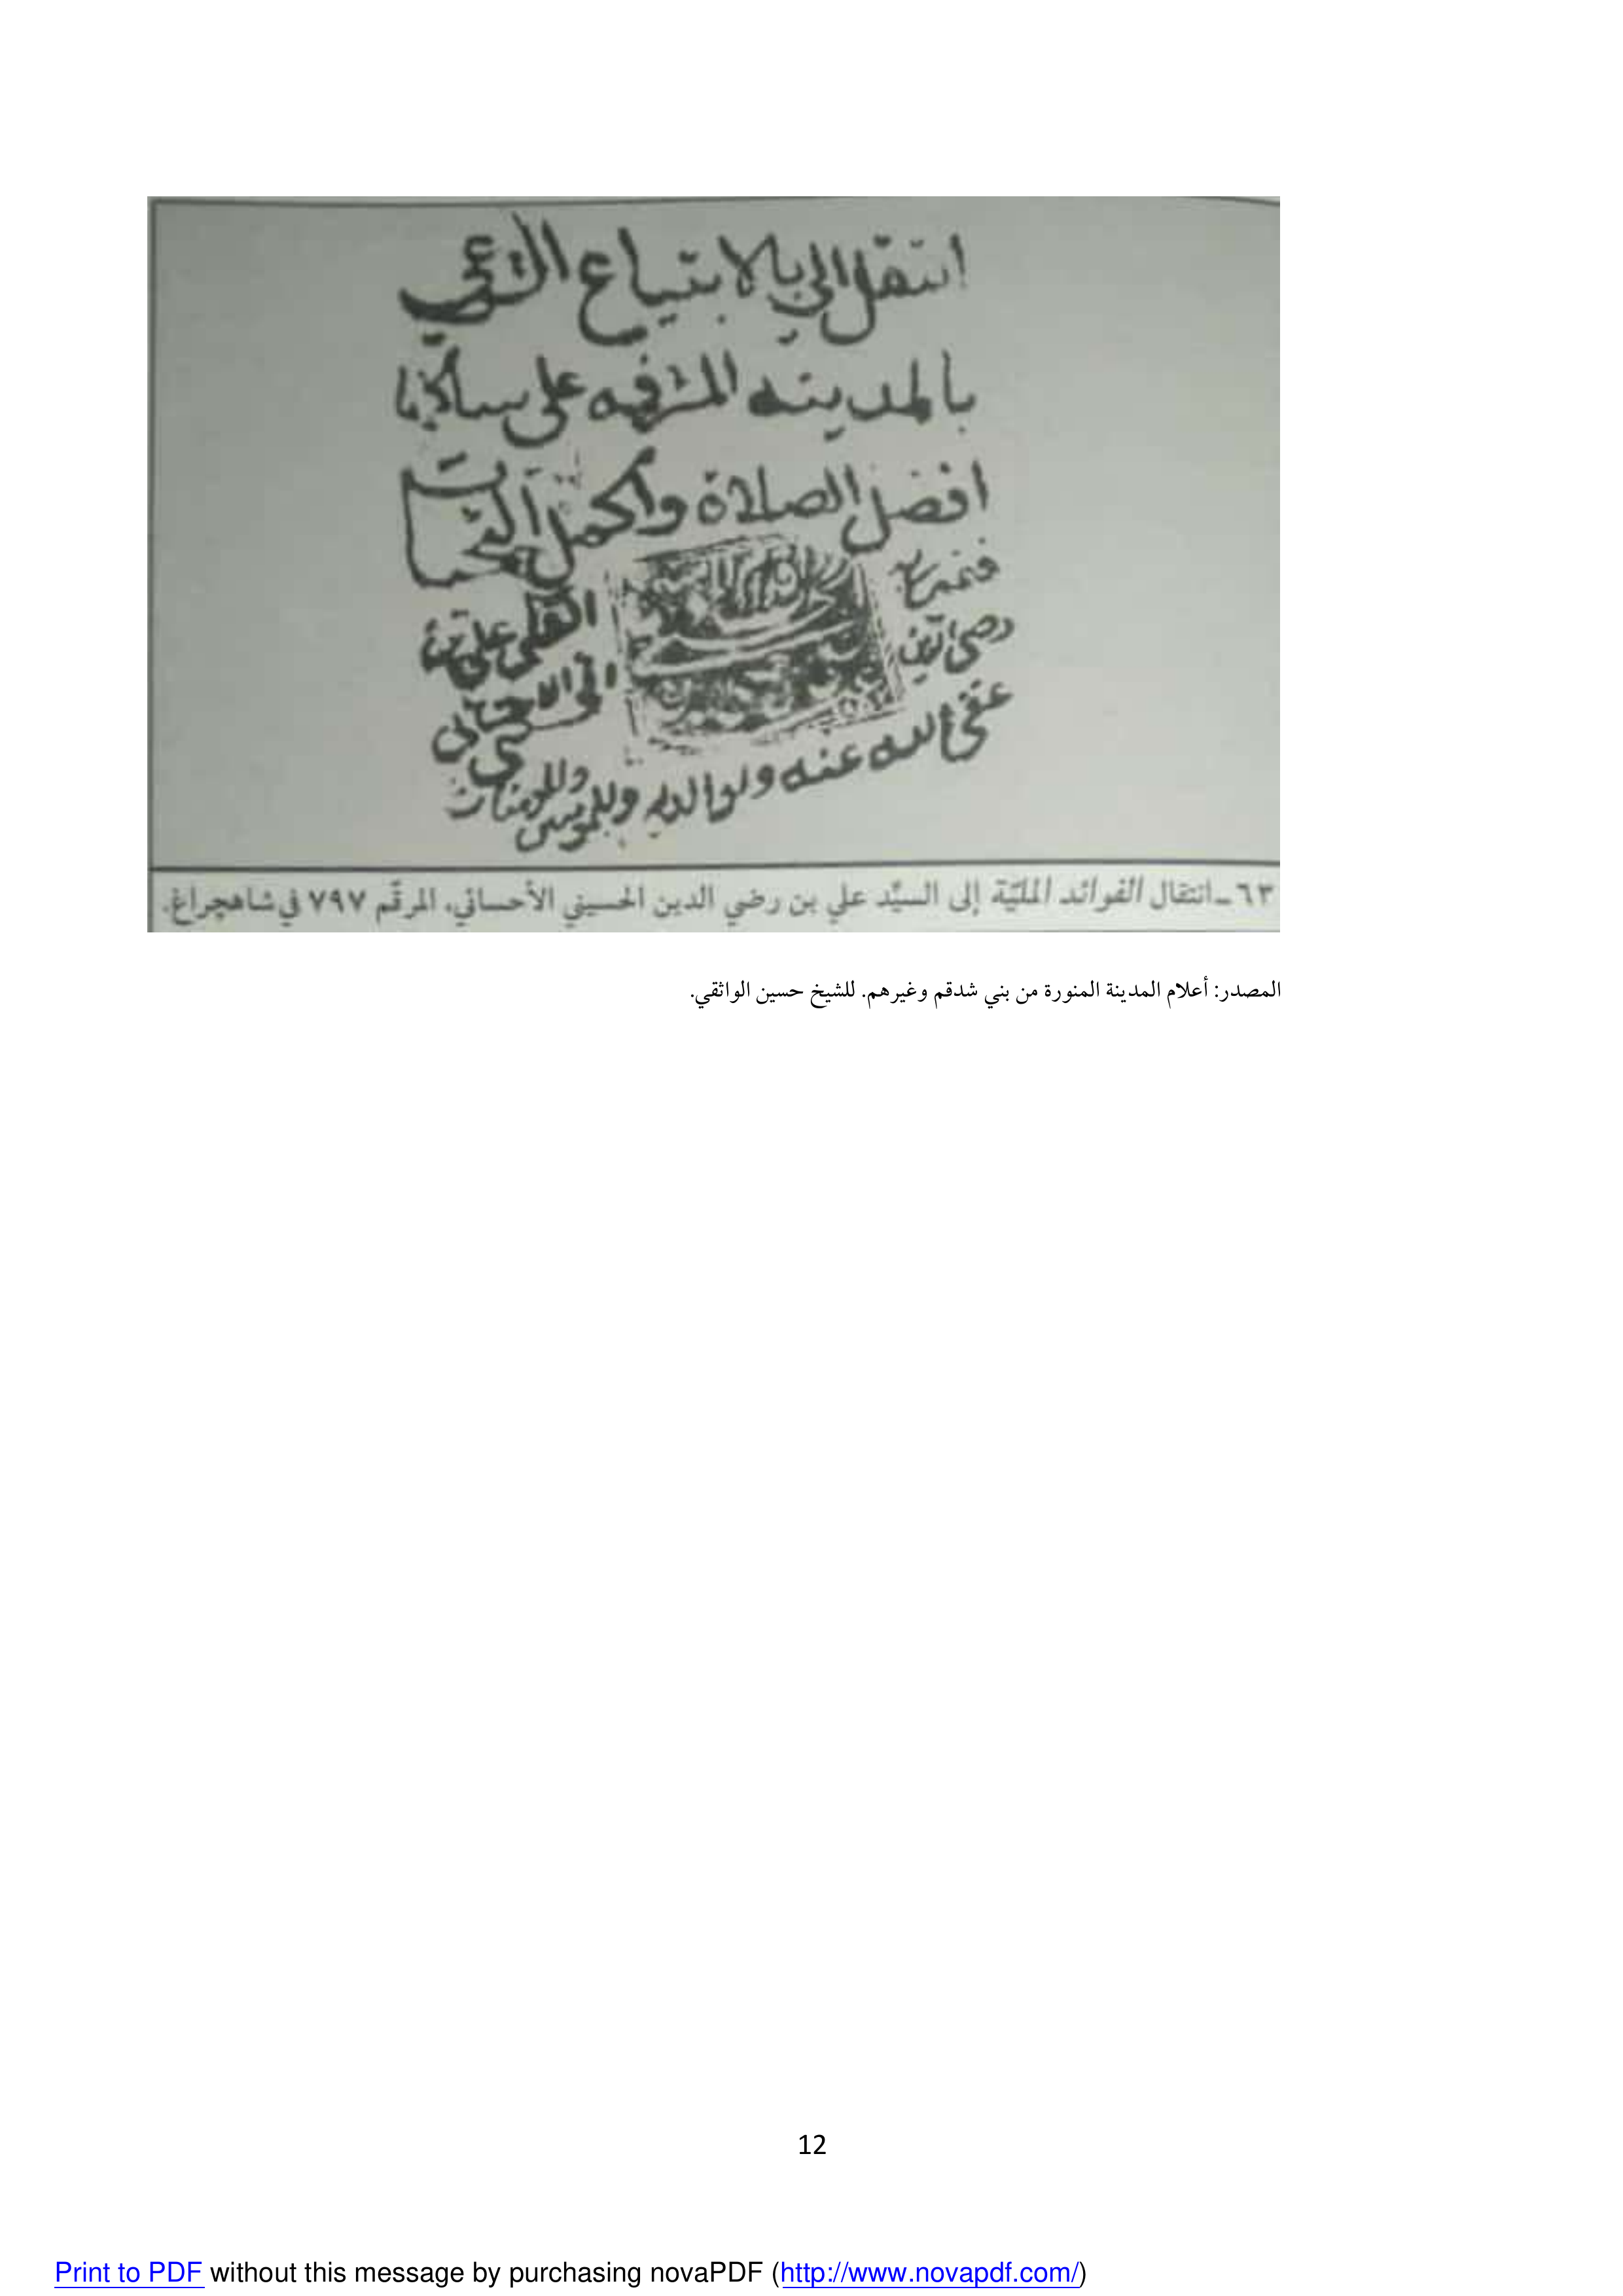 انتقل الي بالابتياع الشرعي
بالمدينه المشرفه على ساكنها
افضل الصلاة واكمل التحيات
علي بن
رضي الدين
عفى الله عنه ولوالديه وللمومنين وللمومنات
٦٣ـ انتقال الفوائد المليّة إلى السيِّد علي بن رضي الدين الحسيني الأحسائي، المرقّم ٧٩٧ في شاهچراغ.
المصدر: أعلام المدينة المنورة من بني شدقم وغيرهم. للشيخ حسين الواثقي.
12
Print to PDF without this message by purchasing novaPDF (http://www.novapdf.com/)